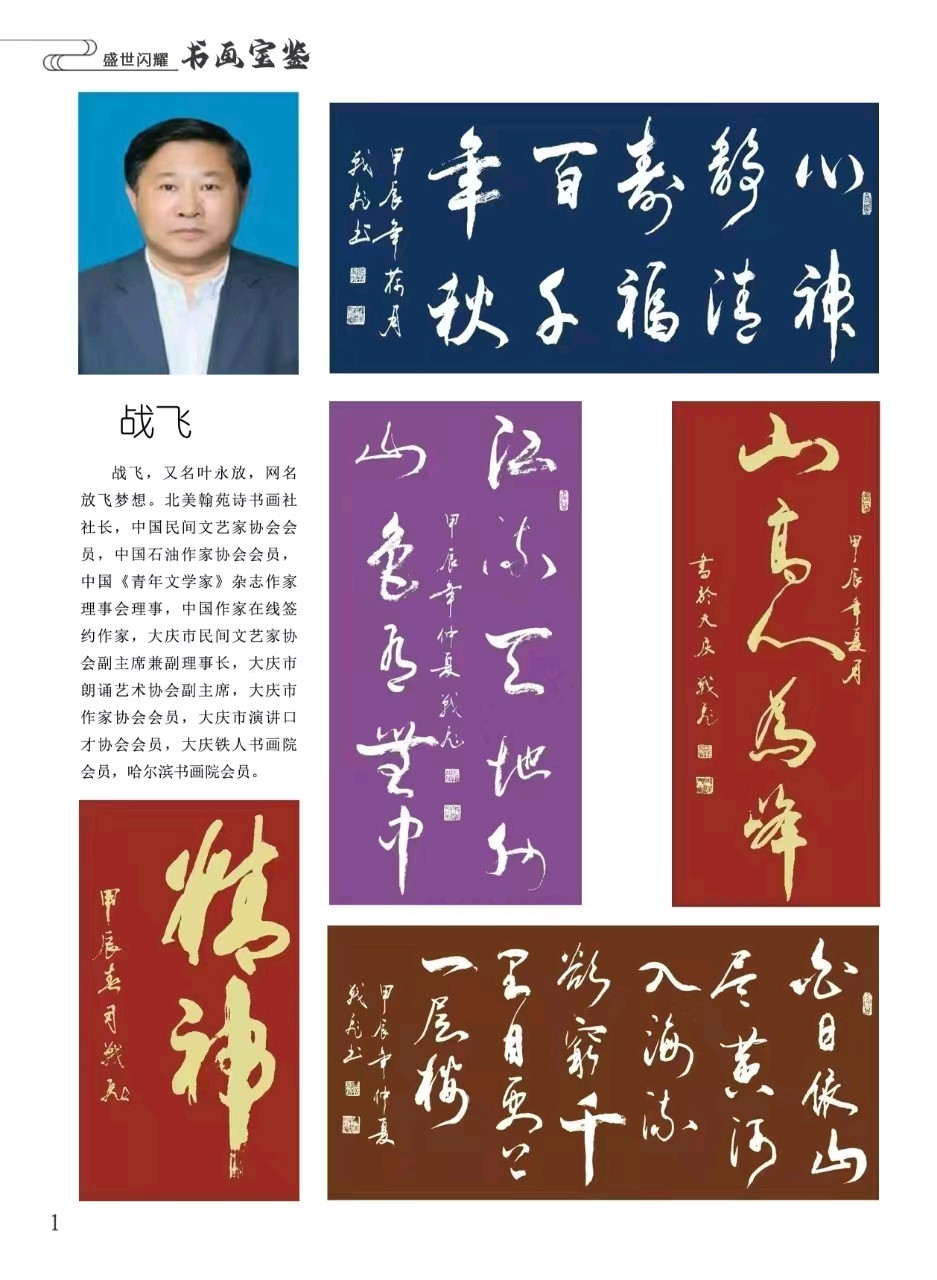 盛世闪耀 书画宝鉴
心神
静清
寿福
百千
年秋
甲辰年荷月
战飞书
战飞
战飞，又名叶永放，网名
放飞梦想。北美翰苑诗书画社
社长，中国民间文艺家协会会
员，中国石油作家协会会员，
中国《青年文学家》杂志作家
理事会理事，中国作家在线签
约作家，大庆市民间文艺家协
会副主席兼副理事长，大庆市
朗诵艺术协会副主席，大庆市
作家协会会员，大庆市演讲口
才协会会员，大庆铁人书画院
会员，哈尔滨书画院会员。
江流天地外
山色有无中
甲辰年仲夏 战飞
甲辰年夏月
山高人为峰
書於大庆 战飞
精神
甲辰春月战飞
白日依山
尽黄河
入海流
欲穷千
里目更上
一层楼
甲辰年仲夏
战飞书
1